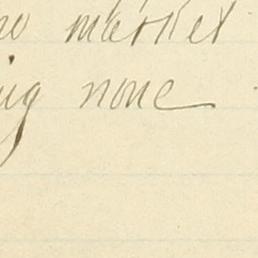 no market
ing none